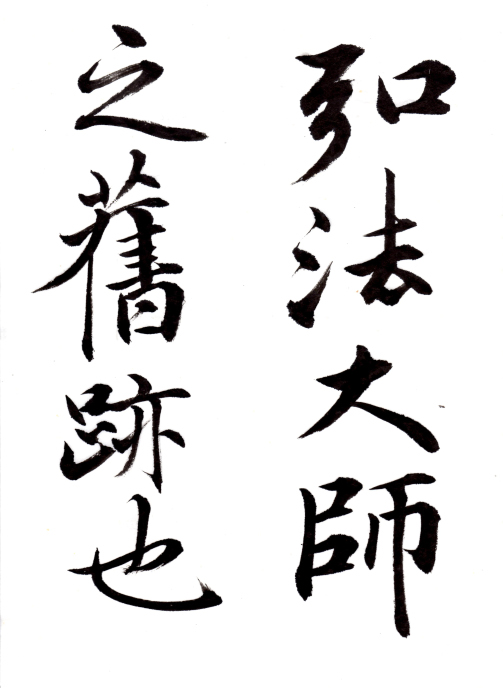 弘法大師
之舊跡也